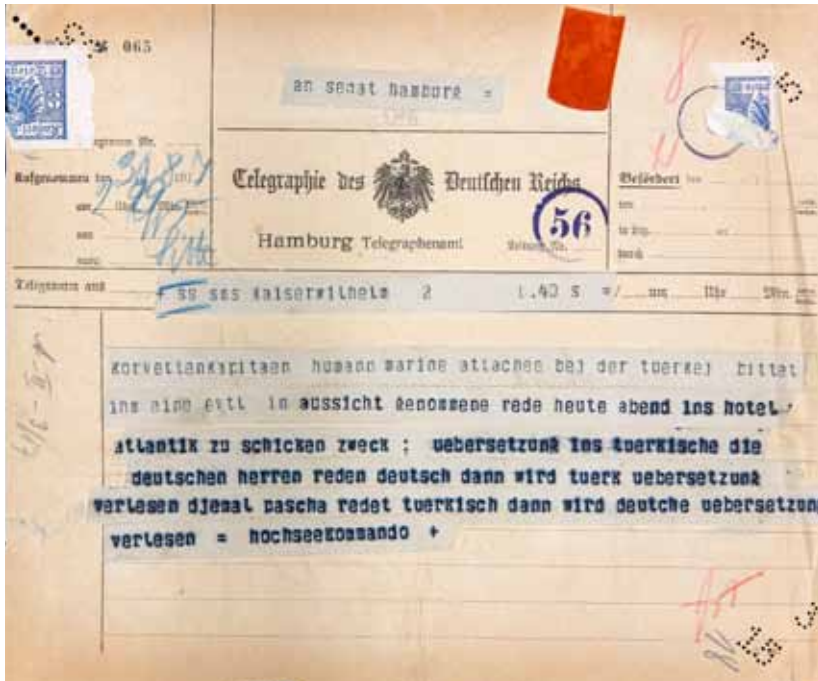 065
an senat hamburg =
Telegramm Nr.
Aufgenommen
Telegraphie des Deutschen Reichs
Befördert
56
Hamburg Telegraphenamt
Telegramm aus + ss sms kaiserwilhelm 2 1.40 s =/ um Uhr Min.
korvettenkapitaen humann marine attachee bei der tuerkei bittet
ins eine evtl in aussicht genommene rede heute abend ins hotel
atlantik zu schicken zweck : uebersetzung ins tuerkische die
deutschen herren reden deutsch dann wird tuerk uebersetzung
verlesen djemal pascha redet tuerkisch dann wird deutche uebersetzung
verlesen = hochseekommando +